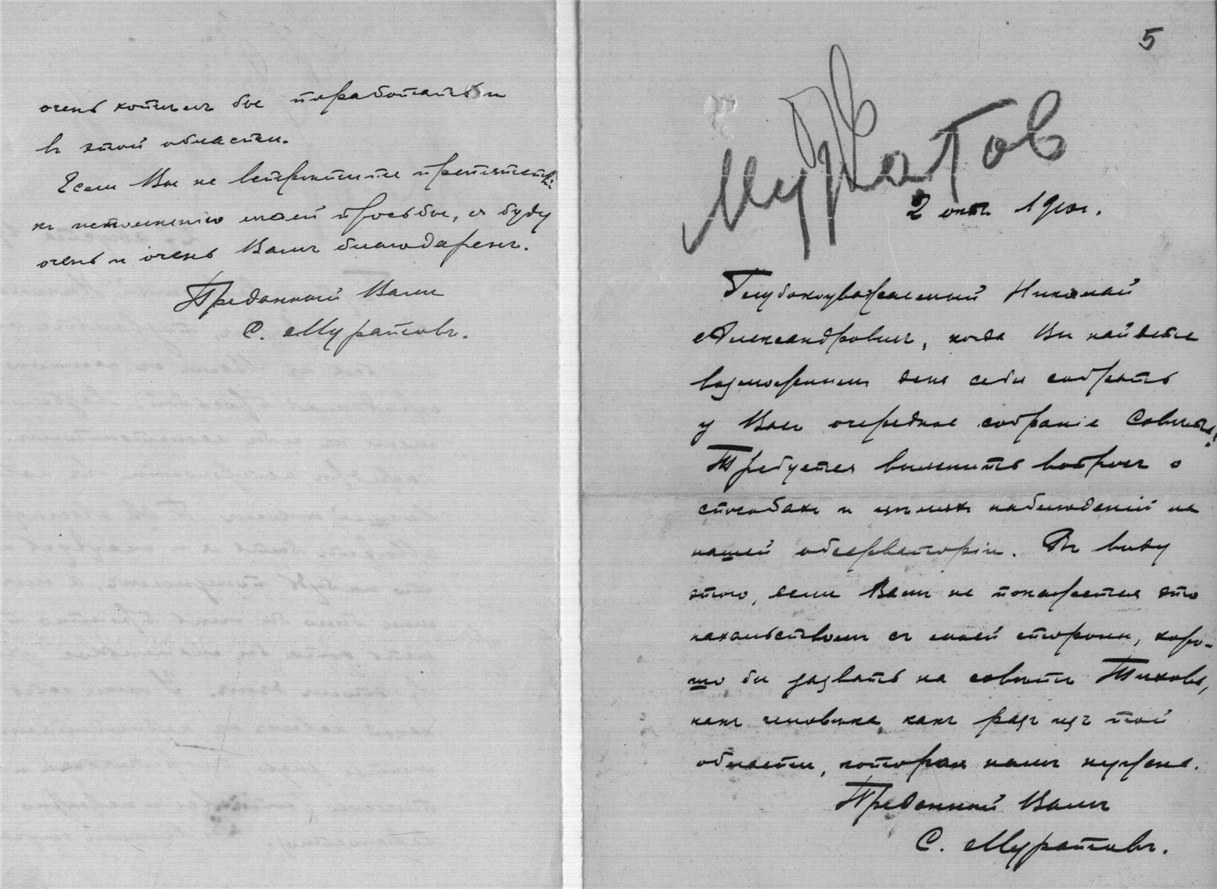 очень хотѣлъ бы поработать и
въ этой области.
Если Вы не встрѣтите препятств.
къ исполненію моей просьбы, я буду
очень и очень Вамъ благодаренъ.
Преданный Вамъ
С. Муратовъ.
5
Муратов
2 окт. 1910г.
Глубокоуважаемый Николай
Александровичъ, когда Вы найдете
возможнымъ для себя собрать
у Васъ очередное собраніе Совѣта?
Требуется выяснить вопросъ о
способахъ и цѣляхъ наблюденій на
нашей обсерваторіи. Въ виду
этого, если Вамъ не покажется это
нахальствомъ съ моей стороны, хоро-
шо бы зазвать на совѣтъ Тихова,
какъ человѣка какъ разъ изъ той
области, которая намъ нужна.
Преданный Вамъ
С. Муратовъ.